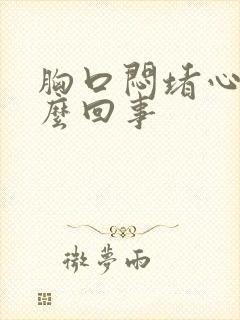 胸口悶堵心
麼回事
微夢雨